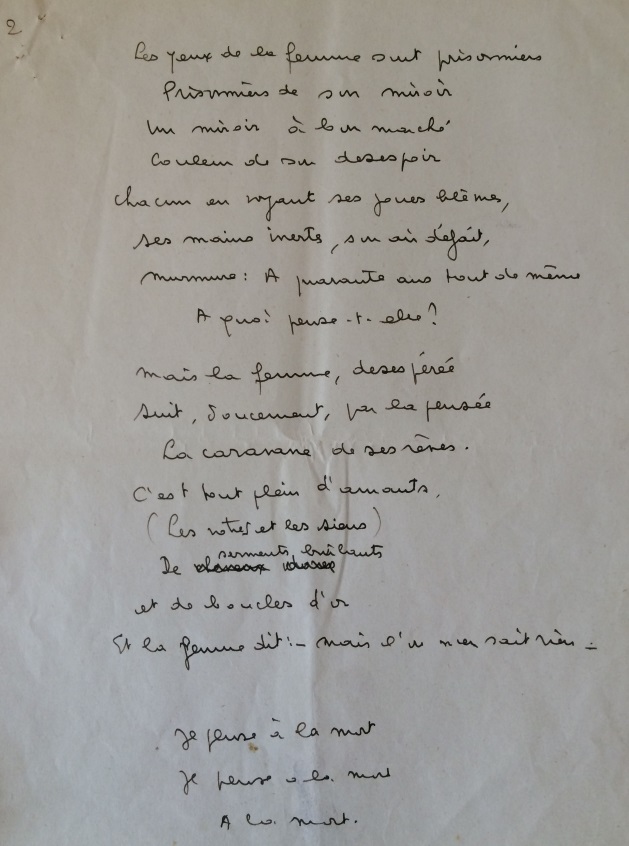 2
Les yeux de la femme sont prisonniers
Prisonniers de son miroir
Un miroir à bon marché
Couleur de son desespoir
Chacun en voyant ses joues blêmes,
ses mains inertes, son air défait,
murmure : A quarante ans tout de même
A quoi pense-t-elle ?
Mais la femme, desespérée
suit, doucement, par la pensée
La caravane de ses rêves.
C'est tout plein d'amants,
(Les notres et les siens)
serments brûlants
De
et de boucles d'or
Et la femme dit :- mais l'on n'en sait rien -
Je pense à la mort
Je pense à la mort
A la mort.